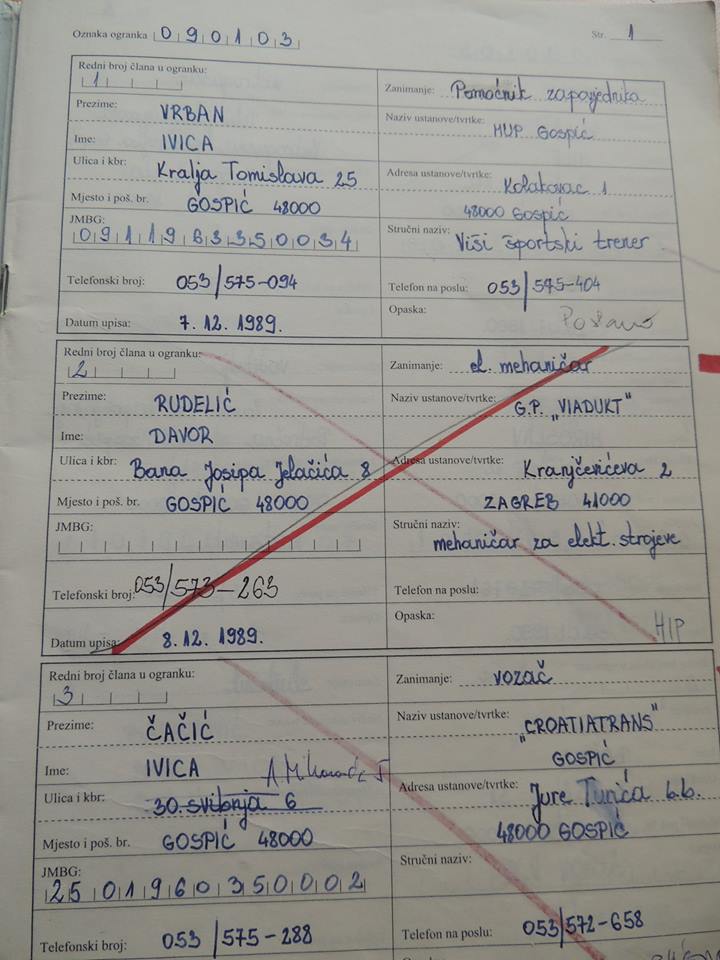 Oznaka ogranka 090103
Str. 1
Redni broj člana u ogranku:
1
Prezime: VRBAN
Ime: IVICA
Ulica i kbr: Kralja Tomislava 25
Mjesto i poš. br. GOSPIĆ 48000
JMBG:
0911963350034
Telefonski broj: 053/575-094
Datum upisa: 7.12.1989.
Zanimanje: Pomoćnik zapovjednika
Naziv ustanove/tvrtke: MUP Gospić
Adresa ustanove/tvrtke: Kolakovac 1
48000 Gospić
Stručni naziv: Viši športski trener
Telefon na poslu: 053/575-404
Opaska:
Redni broj člana u ogranku:
2
Prezime: RUDELIĆ
Ime: DAVOR
Ulica i kbr: Bana Josipa Jelačića 8
Mjesto i poš. br. GOSPIĆ 48000
JMBG:
Telefonski broj: 053/573-263
Datum upisa: 8.12.1989.
Zanimanje: el. mehaničar
Naziv ustanove/tvrtke: G.P. „VIADUKT"
Adresa ustanove/tvrtke: Kranjčevićeva 2
ZAGREB 41000
Stručni naziv:
mehaničar za elekt. strojeve
Telefon na poslu:
Opaska:
Redni broj člana u ogranku:
3
Prezime: ČAČIĆ
Ime: IVICA
Ulica i kbr: 30. svibnja 6
Mjesto i poš. br. GOSPIĆ 48000
JMBG:
2501960350002
Telefonski broj: 053/575-288
Zanimanje: vozač
Naziv ustanove/tvrtke: „CROATIATRANS"
GOSPIĆ
Adresa ustanove/tvrtke: Jure Turića b.b.
48000 GOSPIĆ
Stručni naziv:
Telefon na poslu: 053/572-658